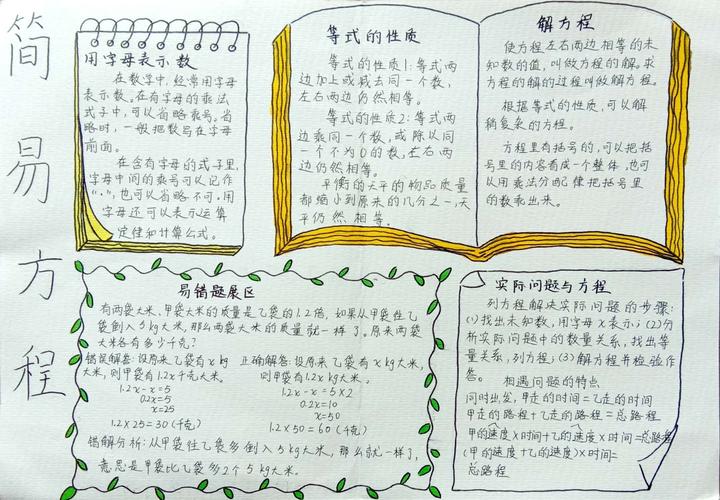 简易方程
用字母表示数
在数学中,经常用字母
表示数。在有字母的乘法
式子中,可以省略乘号。省
略时,一般把数写在字母
前面。
在含有字母的式子里,
字母中间的乘号可以记作
“·”,也可以省略不写。用
字母还可以表示运算
定律和计算公式。
等式的性质
等式的性质1:等式两
边加上或减去同一个数,
左右两边仍然相等。
等式的性质2:等式两
边乘同一个数,或除以同
一个不为0的数,左右两
边仍然相等。
平衡的天平的物品质量
都缩小到原来的几分之一,天
平仍然相等。
解方程
使方程左右两边相等的未
知数的值,叫做方程的解。求
方程的解的过程叫做解方程。
根据等式的性质,可以解
稍复杂的方程。
方程里有括号的,可以把括
号里的内容看成一个整体,也可
以用乘法分配律把括号里
的数乘出来。
易错题展区
有两袋大米,甲袋大米的质量是乙袋的1.2倍,如果从甲袋往乙
袋倒入5kg大米,那么两袋大米的质量就一样了。原来两袋
大米各有多少千克?
错误解答:设原来乙袋有x kg
大米,则甲袋有1.2x千克大米。
1.2x-x=5
0.2x=5
x=25
1.2×25=30(千克)
正确解答:设原来乙袋有x kg大米,
则甲袋有1.2x kg大米。
1.2x-x=5×2
0.2x=10
x=50
1.2×50=60(千克)
错解分析:从甲袋往乙袋多倒入5kg大米,那么就一样了,
意思是甲袋比乙袋多2个5kg大米。
实际问题与方程
列方程解决实际问题的步骤:
(1)找出未知数,用字母x表示;(2)分
析实际问题中的数量关系,找出等
量关系,列方程;(3)解方程并检验作
答。
相遇问题的特点
同时出发,甲走的时间=乙走的时间
甲走的路程+乙走的路程=总路程
甲的速度×时间+乙的速度×时间=总路程
(甲的速度+乙的速度)×时间=
总路程